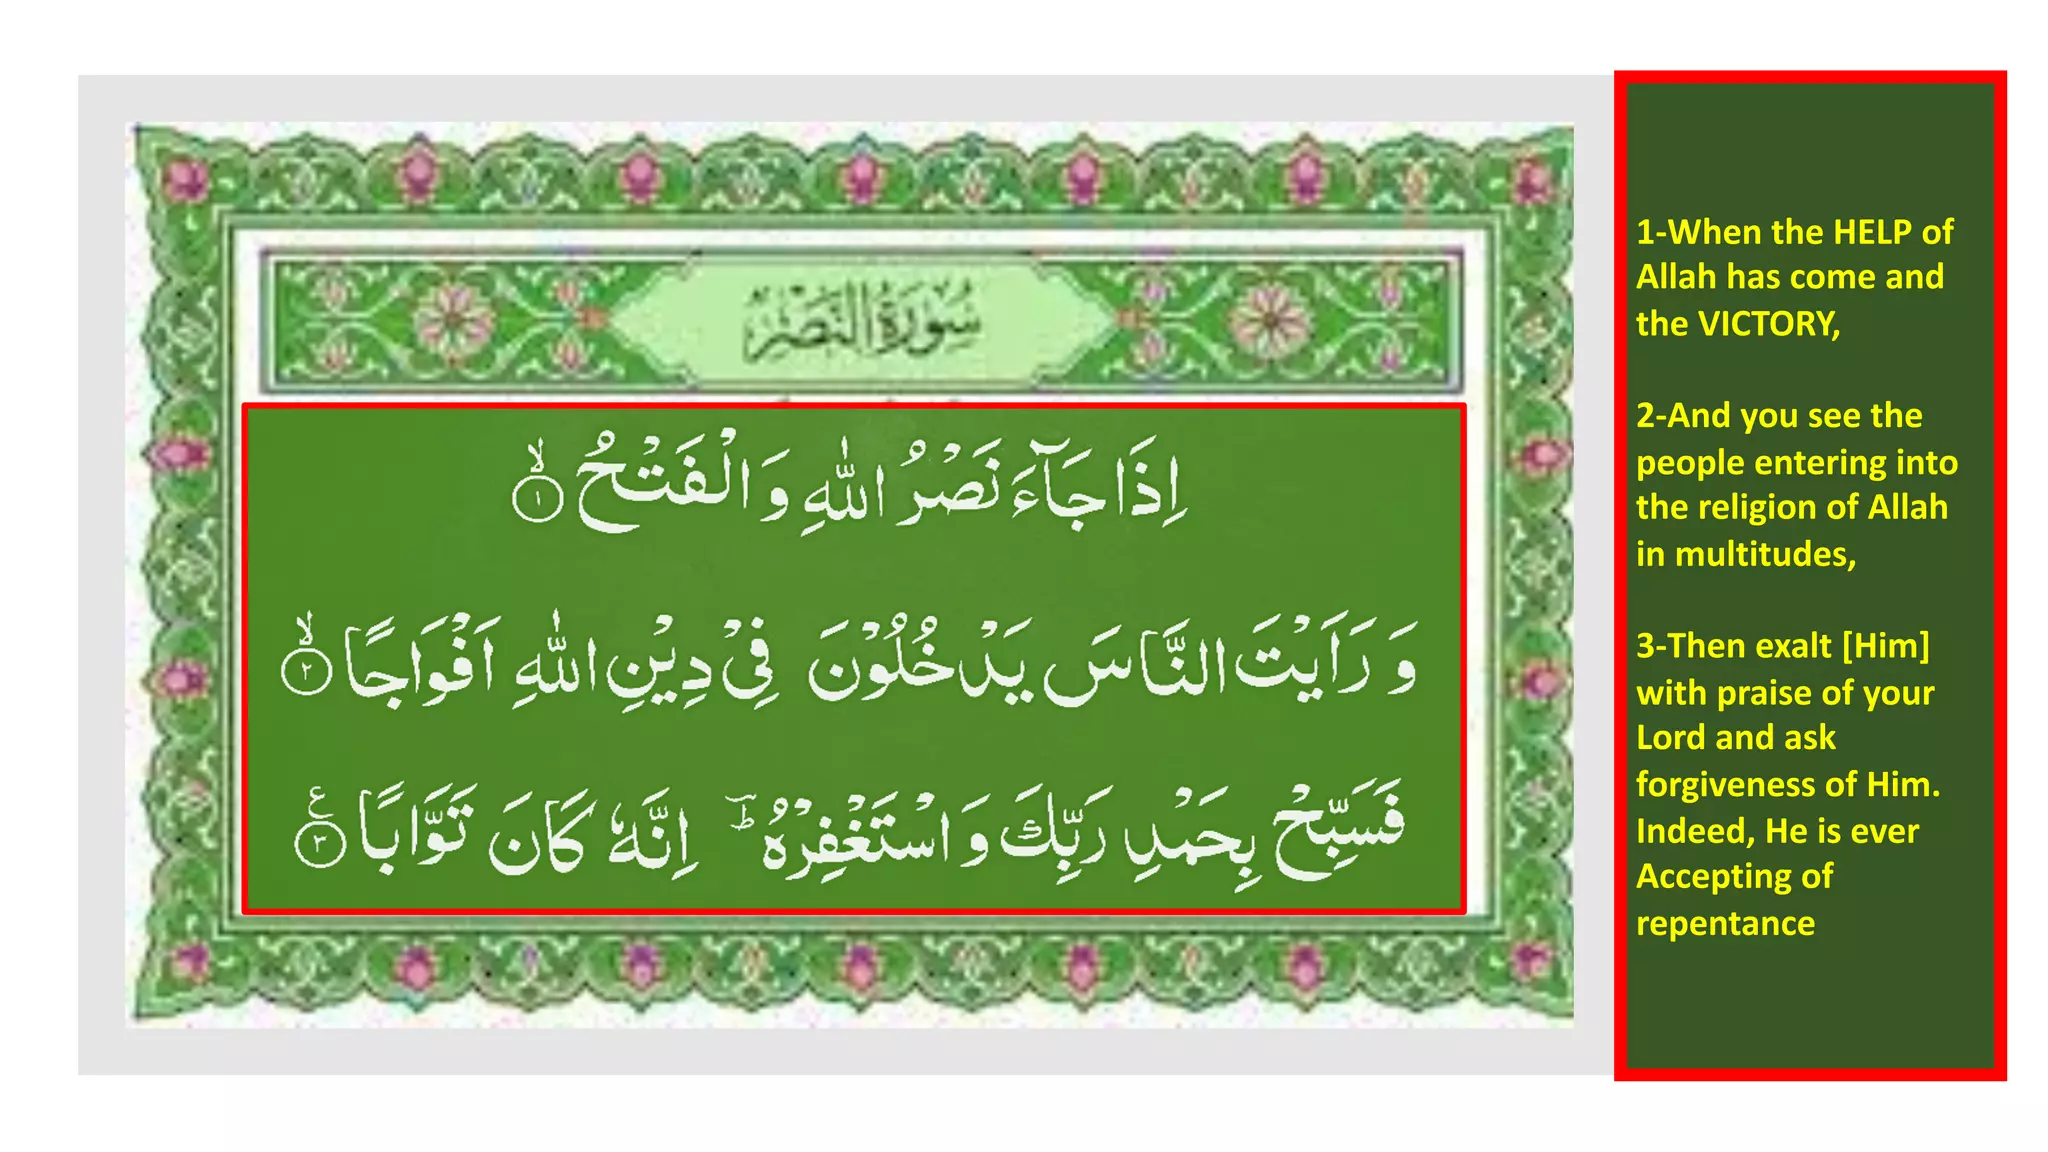 سُوْرَةُ النَّصْرِ
اِذَا جَآءَ نَصْرُ اللّٰهِ وَالْفَتْحُ ۙ‏ ١
وَ رَاَيْتَ النَّاسَ يَدْخُلُوْنَ فِىْ دِيْنِ اللّٰهِ اَفْوَاجًا ۙ‏ ٢
فَسَبِّحْ بِحَمْدِ رَبِّكَ وَاسْتَغْفِرْهُ ؕ اِنَّهٗ كَانَ تَوَّابًا ٣ ع
1-When the HELP of
Allah has come and
the VICTORY,
2-And you see the
people entering into
the religion of Allah
in multitudes,
3-Then exalt [Him]
with praise of your
Lord and ask
forgiveness of Him.
Indeed, He is ever
Accepting of
repentance